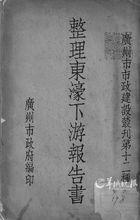 廣州市市政建設叢刊第十二種
整理東濠下游報告書
廣州市政府編印